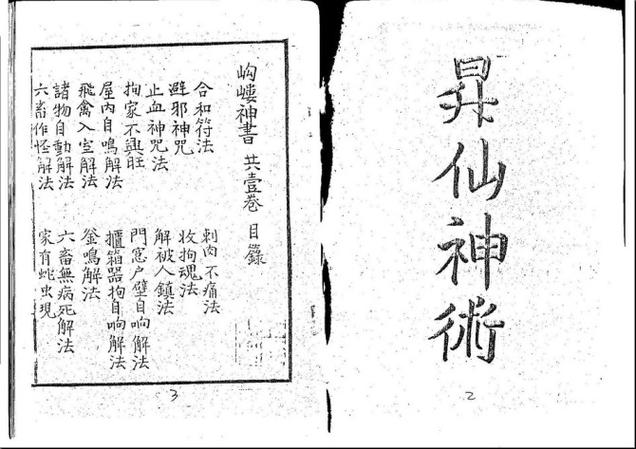 昇仙神術
2
岣嶁神書 共壹卷 目錄
合和符法
刺肉不痛法
避邪神咒
收拘魂法
止血神咒法
解被人鎮法
拘家不興旺
門窓户壁自响解法
屋内自鳴解法
攞箱器拘自响解法
飛禽入室解法
釜鳴解法
諸物自動解法
六畜無病死解法
六畜作怪解法
家有蛇虫現
3